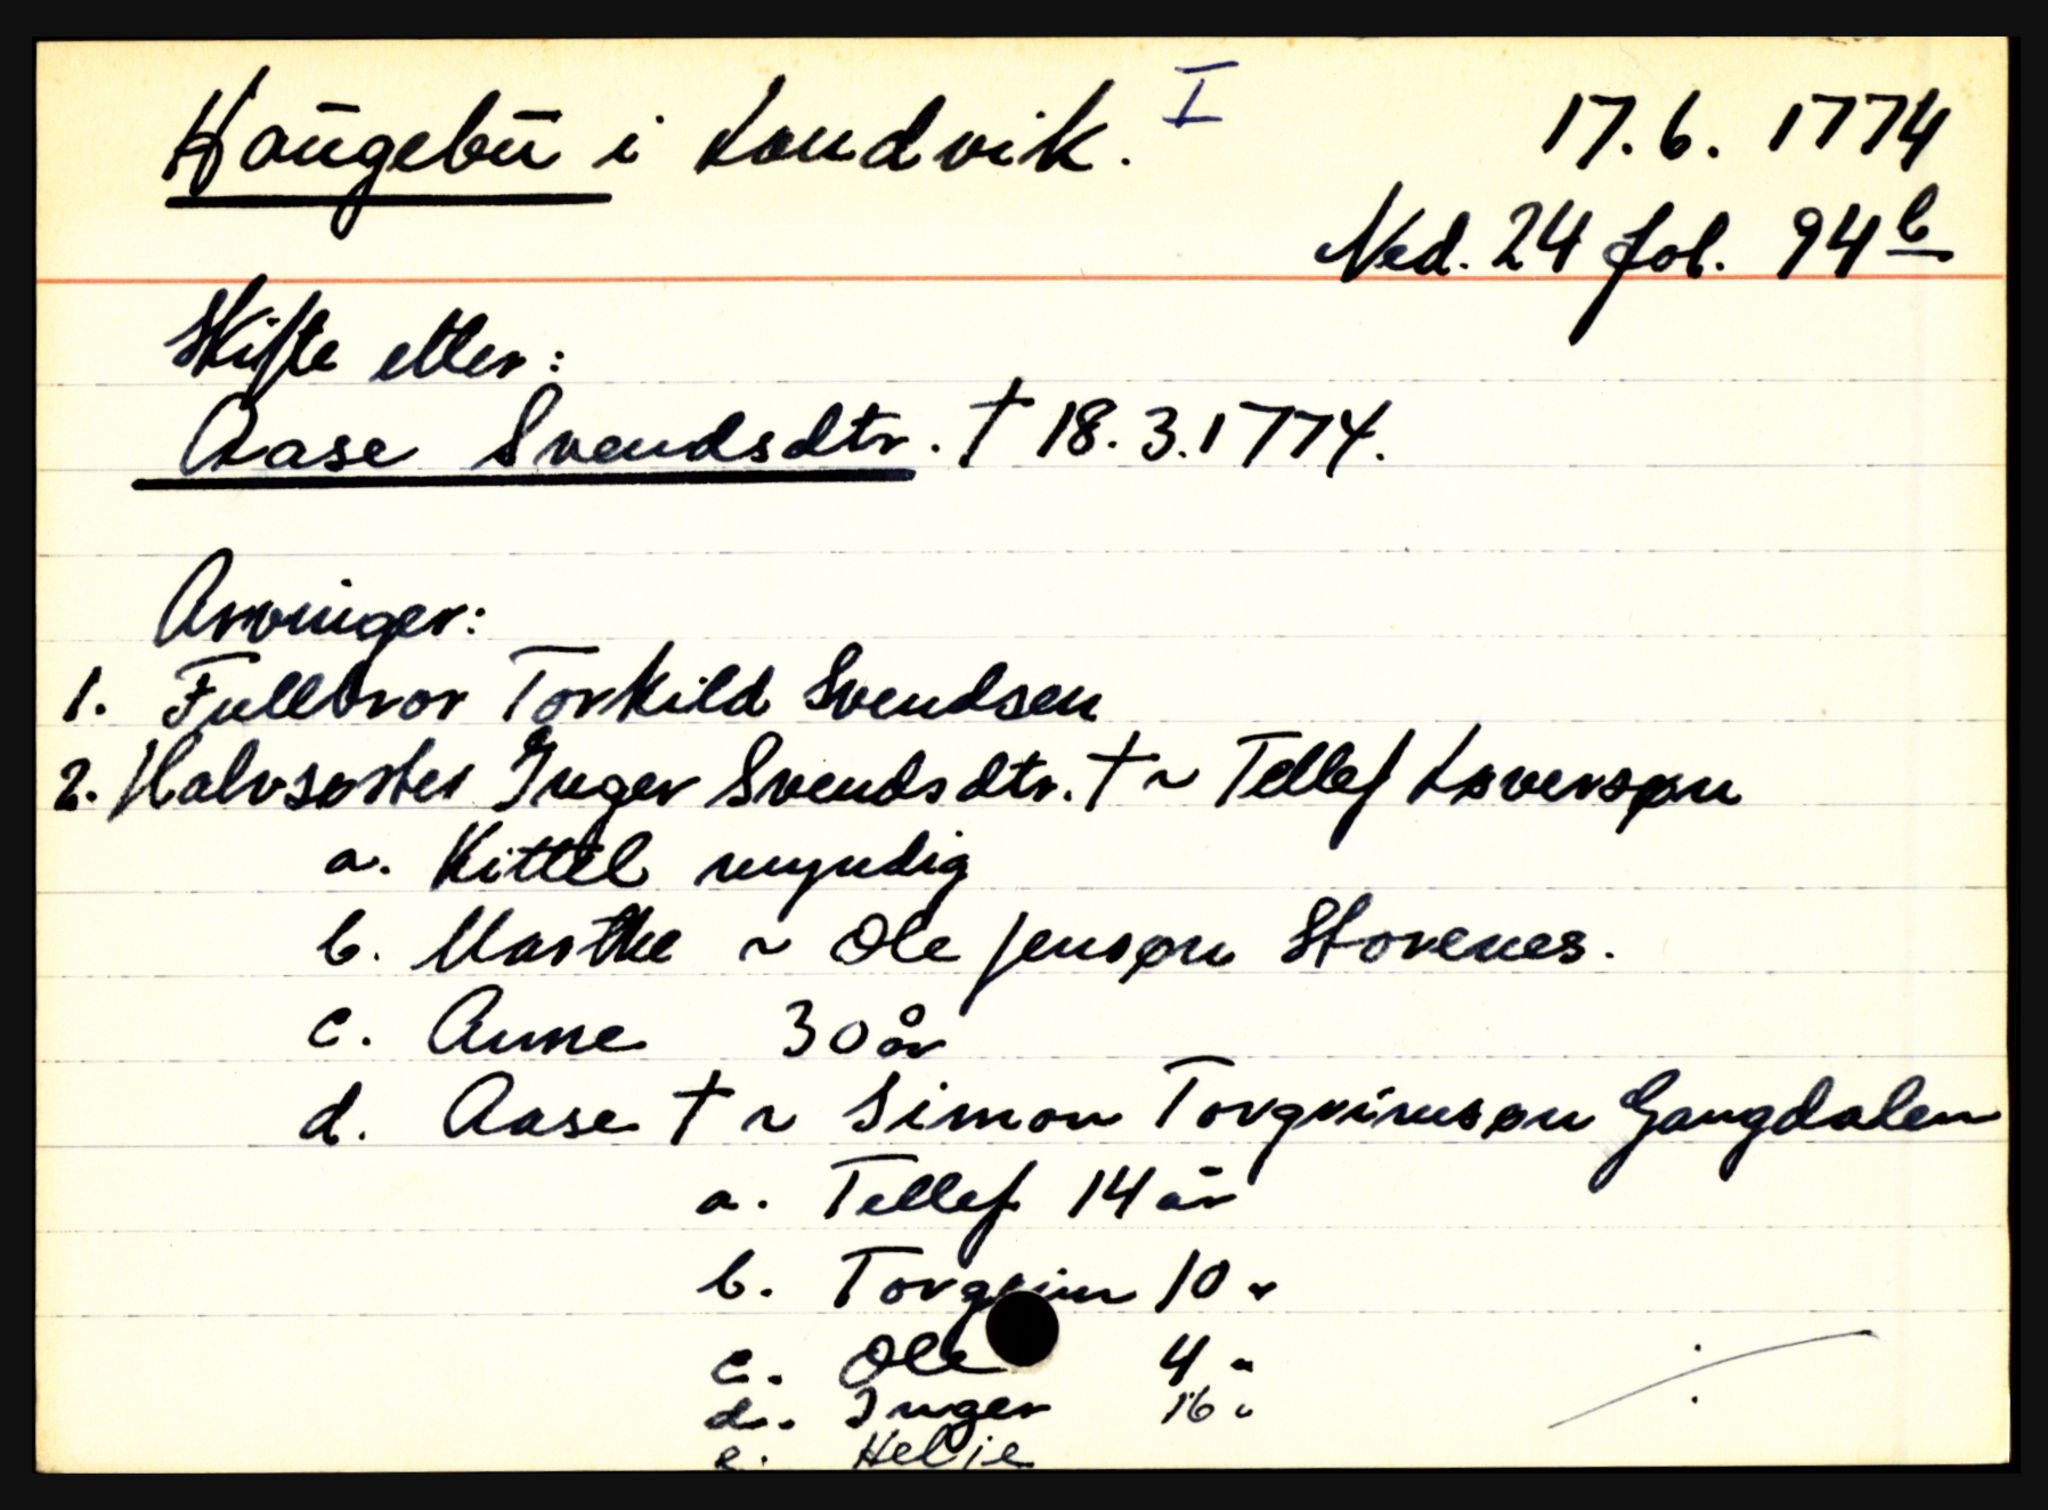 Haugebu i Landvik. I 17.6. 1774
Ned. 24 fol. 94 b
Skifte etter:
Aase Svendsdtr. † 18.3.1774.
Arvinger:
1. Fullbror Torkild Svendsen
2. Halvsøster Inger Svendsdtr. † ~ Tellef Laversøn
a. Kittel myndig
b. Marthe ~ Ole Jensøn Storenes.
c. Anne 30 år
d. Aase † ~ Simon Torgrimsøn Gangdalen
a. Tellef 14 år
b. Torgrim 10 "
c. Ole 4 "
d. Inger 16 "
e. Helje